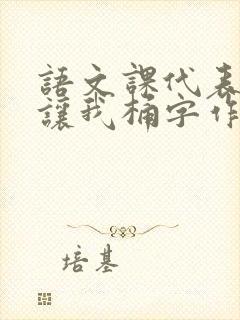 語文課代表
讓我桶字作
培基